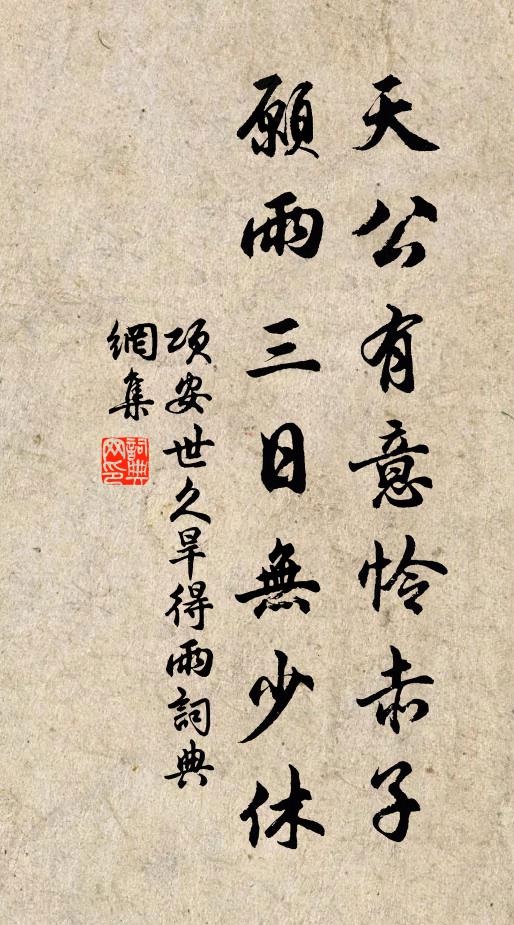 天公有意怜赤子
願雨三日無少休
項安世久旱得雨詞典
網集
詞典网印